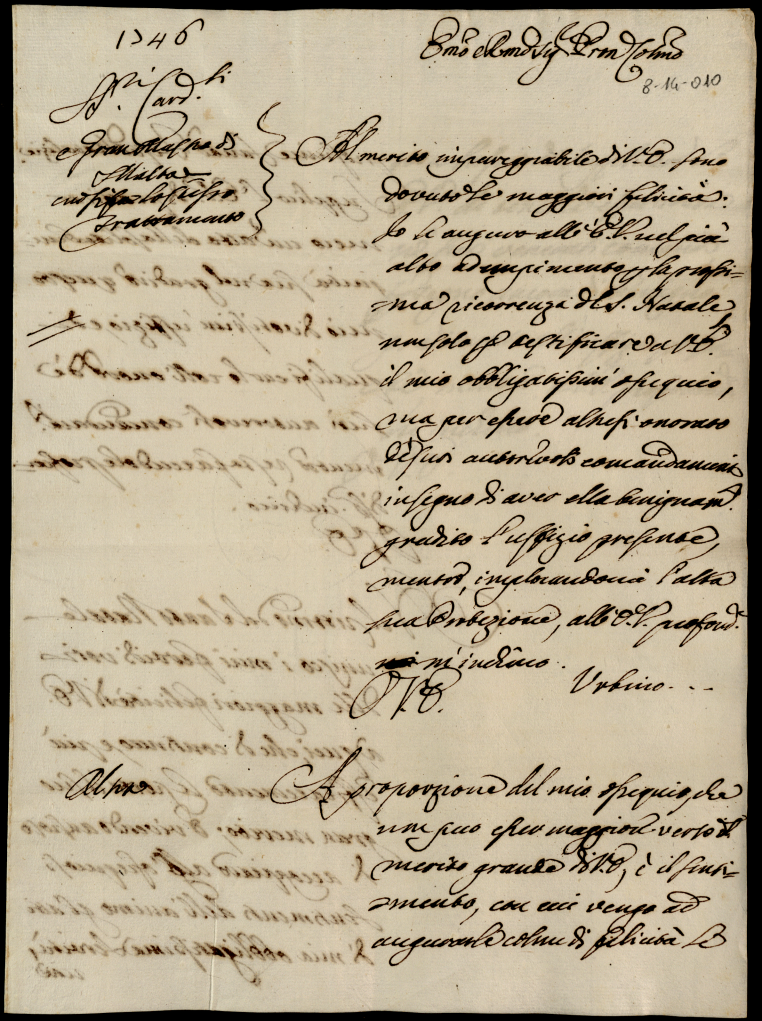 1746
Emo e Rmo Sig Pron Colmo
8-14-010
SS.ri Card.li
e Gran Mastro di
Malta
cui si fa lo stesso
Trattamento
Al merito impareggiabile di V.E. sono
dovute le maggiori felicità.
Io le auguro all'E.V. nel più
alto adempimento per la prossi-
ma ricorrenza del S. Natale
non solo per testificare a V.E.
il mio obbligatissimo ossequio,
ma per essere altresì onorato
de' suoi autorevoli comandamenti
in segno di aver ella benignam.
gradito l'uffizio presente,
mentre, implorandomi l'alta
sua Protezione, all'E.V. profond.
m'inchino.
V.E. Urbino...
Altra
A proporzione del mio ossequio, che
non può esser maggiore verso il
merito grande di V.E., è il senti-
mento, con cui vengo ad
augurarle colme di felicità le